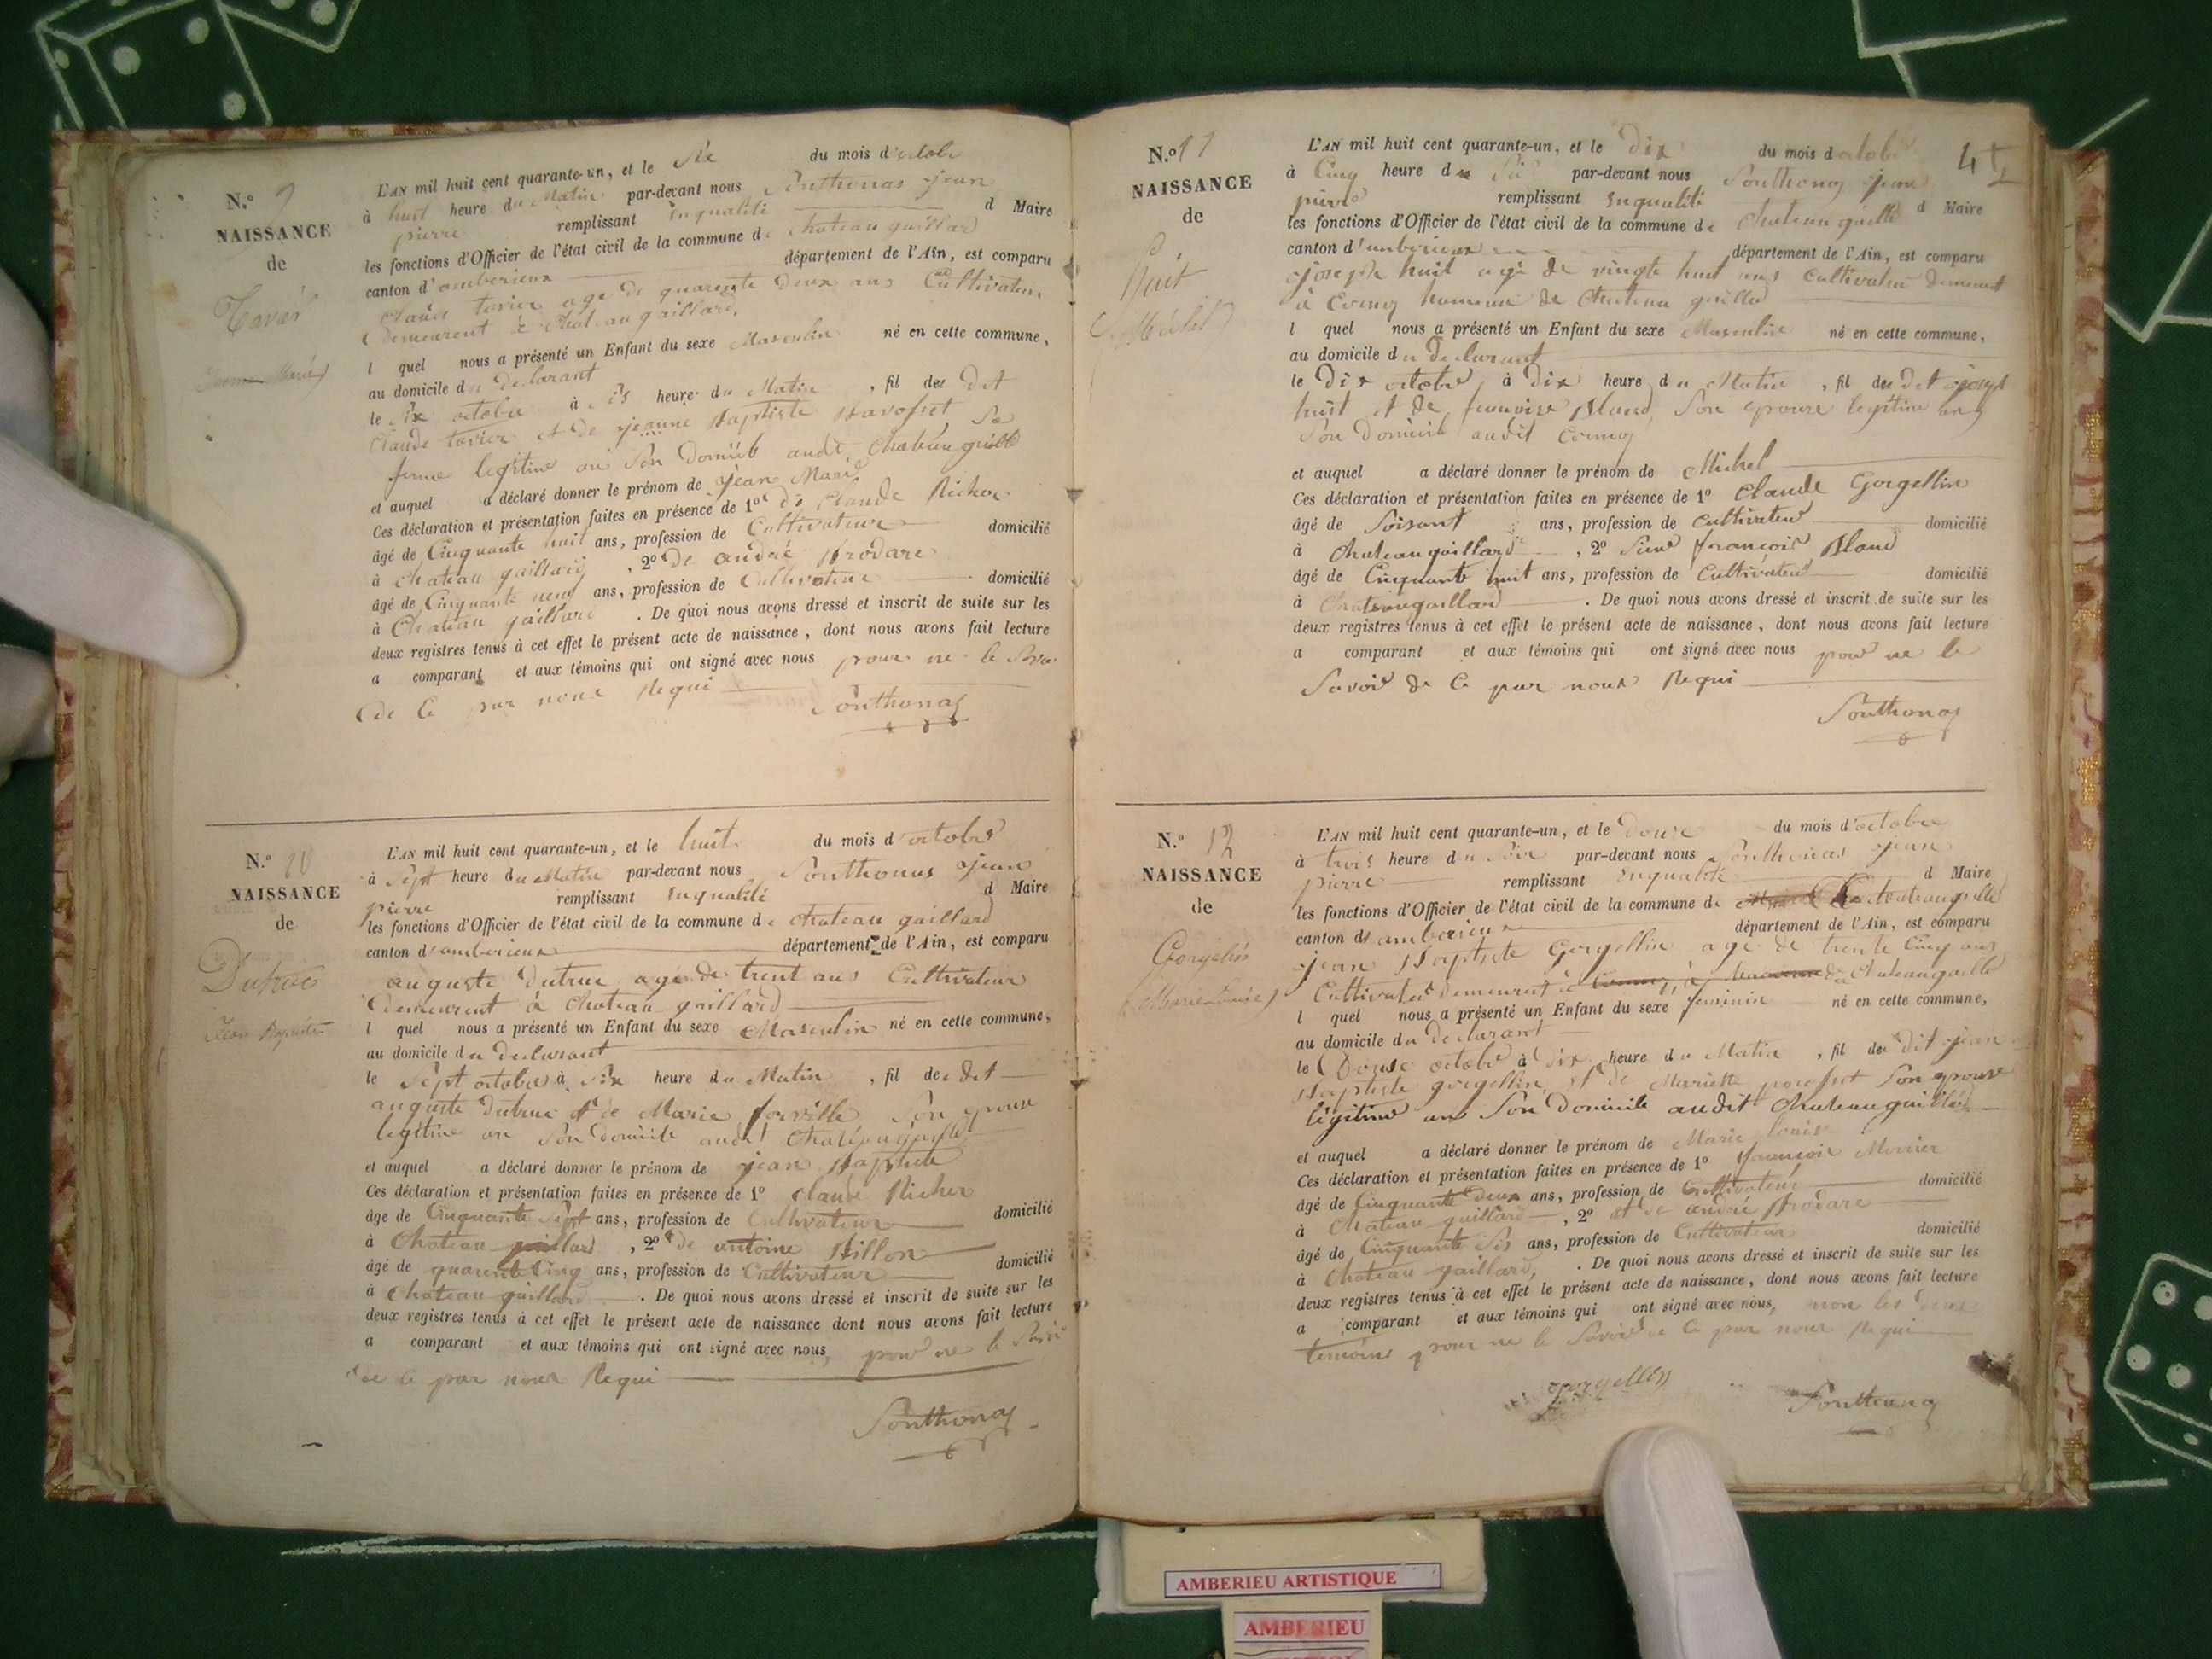 N.º 9
NAISSANCE
de
Tavier
Jean Marie
L'AN mil huit cent quarante-un, et le six du mois d'octobre
à huit heure du Matin par-devant nous Ponthonas jean
pierre remplissant inqualité d Maire
les fonctions d'Officier de l'état civil de la commune de chateau gaillard
canton d'amberieux département de l'Ain, est comparu
Claude tavier age de quarente deux ans Cultivateur
demeurent à chateau gaillard,
l quel nous a présenté un Enfant du sexe Masculin né en cette commune,
au domicile du declarant
le six octobre à heure du Matin , fil des dit
Claude tavier et de jeanne Baptiste sa
feme legitime on Son Domicile audit Chateau gaillard
et auquel a déclaré donner le prénom de jean Marie
Ces déclaration et présentation faites en présence de 1º de Claude Richer
âgé de Cinquante huit ans, profession de Cultivateur domicilié
à Chateau gaillard , 2º de andré Brodare
âgé de Cinquante neuf ans, profession de Cultivateur domicilié
à Chateau gaillard . De quoi nous avons dressé et inscrit de suite sur les
deux registres tenus à cet effet le présent acte de naissance, dont nous avons fait lecture
a comparant et aux témoins qui ont signé avec nous pour ne le Savoir
de Ce par nous Requi
Ponthonas
N.º 10
NAISSANCE
de
Dutruc
Jean Baptiste
L'AN mil huit cent quarante-un, et le huit du mois d'octobre
à Sept heure du Matin par-devant nous Ponthonas jean
pierre remplissant inqualité d Maire
les fonctions d'Officier de l'état civil de la commune de chateau gaillard
canton d'amberieux département de l'Ain, est comparu
auguste Dutruc agé de trent ans Cultivateur
demeurent à Chateau gaillard
l quel nous a présenté un Enfant du sexe Masculin né en cette commune,
au domicile du declarant
le Sept octobre à six heure du Matin , fil de dit
auguste Dutruc et de Marie Son epouse
legitime on Son Domicile audit Chateau gaillard
et auquel a déclaré donner le prénom de jean Baptiste
Ces déclaration et présentation faites en présence de 1º Claude Richer
âge de Cinquante Sept ans, profession de Cultivateur domicilié
à Chateau gaillard , 2º de antoine Billon
âgé de quarente Cinq ans, profession de Cultivateur domicilié
à Chateau gaillard . De quoi nous avons dressé et inscrit de suite sur les
deux registres tenus à cet effet le présent acte de naissance dont nous avons fait lecture
a comparant et aux témoins qui ont signé avec nous, pour ne le Savoir
de Ce par nous Requi
Ponthonas
N.º 11
NAISSANCE
de
Huit
Michel
L'AN mil huit cent quarante-un, et le Dix du mois d'octobre
à Cinq heure du Soir par-devant nous Ponthonas jean
pierre remplissant inqualité d Maire
les fonctions d'Officier de l'état civil de la commune de Chateau gaillard
canton d'amberieux département de l'Ain, est comparu
joseph huit agé de vingte huit ans Cultivateur Demeurant
à Cormoz hameau de Chateau gaillard
l quel nous a présenté un Enfant du sexe Masculin né en cette commune,
au domicile du Declarant
le Dix octobre à Dix heure du Matin , fil du dit joseph
huit et de francoise Bland, Son epouse legitime on
Son Domicile audit Cormoz
et auquel a déclaré donner le prénom de Michel
Ces déclaration et présentation faites en présence de 1º Claude Gorgellin
âgé de Soisant ans, profession de Cultivateur domicilié
à Chateau gaillard , 2º Sieur francois Bland
âgé de Cinquante huit ans, profession de Cultivateur domicilié
à Chateaugaillard . De quoi nous avons dressé et inscrit de suite sur les
deux registres tenus à cet effet le présent acte de naissance, dont nous avons fait lecture
a comparant et aux témoins qui ont signé avec nous pour ne le
Savoir de Ce par nous Requi
Ponthonas
N.º 12
NAISSANCE
de
Gorgelin
(Marie Louise)
L'AN mil huit cent quarante-un, et le douze du mois d'octobre
à trois heure du Soir par-devant nous Ponthonas jean
pierre remplissant inqualité d Maire
les fonctions d'Officier de l'état civil de la commune de Chateaugaillard
canton d'amberieux département de l'Ain, est comparu
jean Baptiste Gorgellin agé de trente Cinq ans
Cultivateur demeurent à Chateaugaillard
l quel nous a présenté un Enfant du sexe feminin né en cette commune,
au domicile du declarant
le Douse octobre à Dix heure du Matin , fil de dit jean
Baptiste gorgellin et de Mariette Son epouse
légitime on Son Domicile audit Chateau gaillard
et auquel a déclaré donner le prénom de Marie louise
Ces déclaration et présentation faites en présence de 1º francois
âgé de Cinquante Deux ans, profession de Cultivateur domicilié
à Chateau gaillard , 2º et de andré Brodare
âgé de Cinquante Six ans, profession de Cultivateur domicilié
à Chateau gaillard, . De quoi nous avons dressé et inscrit de suite sur les
deux registres tenus à cet effet le présent acte de naissance, dont nous avons fait lecture
a comparant et aux témoins qui ont signé avec nous, non les deux
temoins pour ne le Savoir de Ce par nous Requi
gorgellin Ponthonas
AMBERIEU ARTISTIQUE
AMBERIEU